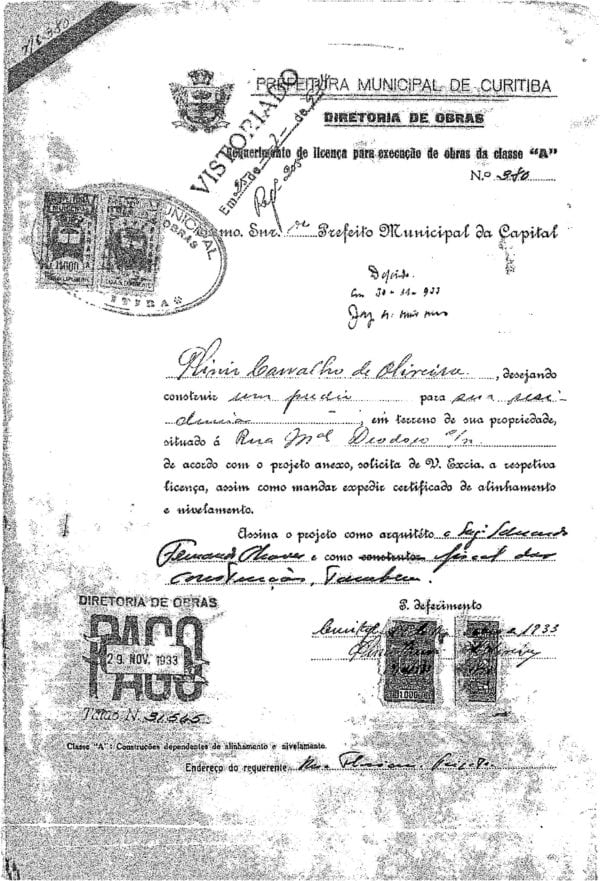 Nº 380
PREFEITURA MUNICIPAL DE CURITIBA
DIRETORIA DE OBRAS
Requerimento de licença para execução de obras da classe "A"
N.o 380
VISTORIADO
Em de de
MUNICIPAL
OBRAS
Exmo. Snr. Prefeito Municipal da Capital
Deferido
Em 30-11-933
Plinio Carvalho de Oliveira, desejando
construir um predio para sua resi-
dencia, em terreno de sua propriedade,
situado á Rua Mal Deodoro s/n
de acordo com o projeto anexo, solicita de V. Excia. a respetiva
licença, assim como mandar expedir certificado de alinhamento
e nivelamento.
Assina o projeto como arquitéto o Engº Eduardo
Fernando Chaves e como construtor fiscal das
construção, Tambem.
P. deferimento
DIRETORIA DE OBRAS
PAGO
29 NOV. 1933
Talão N. 31.565
1933
Classe "A": Construções dependentes de alinhamento e nivelamento.
Endereço do requerente Rua Floriano Peixoto